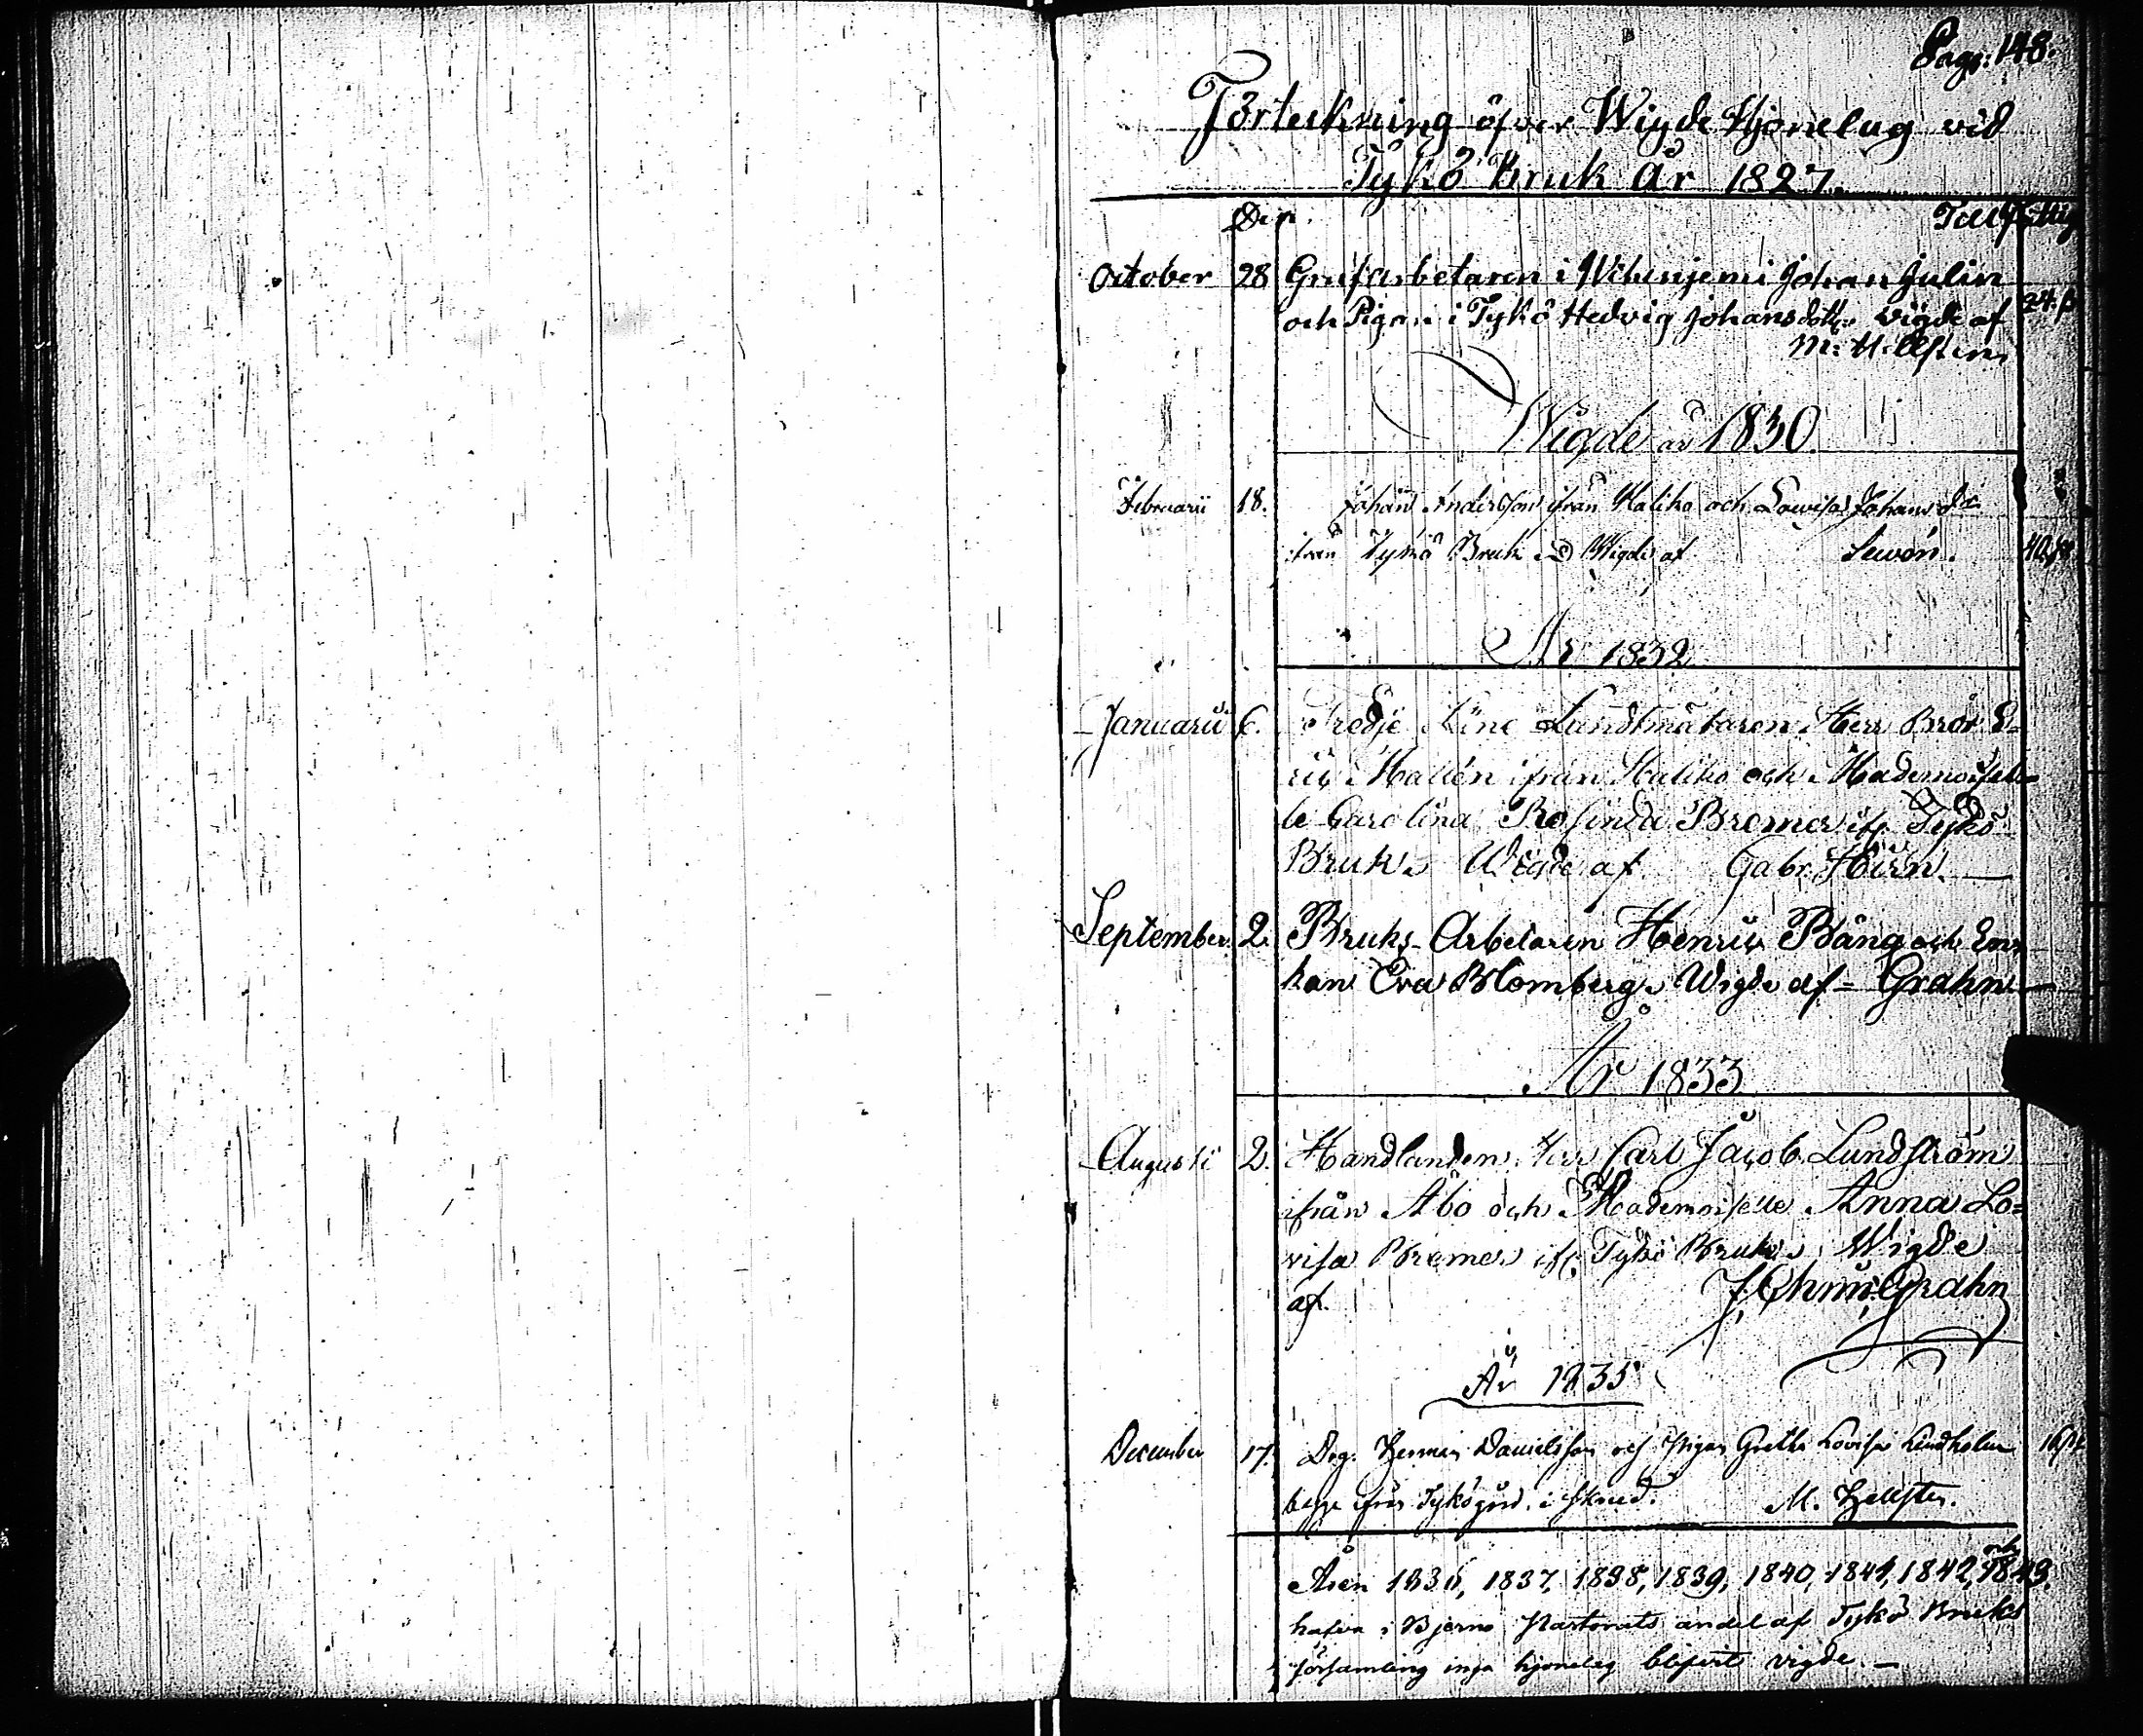 Pag: 148.
Förteckning öfver Wigde Hjonelag vid
Tykö Bruk År 1827.
Den.
October 28 Grufarbetaren i Johan Julin
och Pigan i Tykö Hedvig Johansdotter vigde af 24. β
M: Hellsten
Wigde år 1830.
Februarii 18. Johan Andersson ifrån Haliko och Lovisa Johansdr
ifrån Tykö Bruk Wigde af Lewon.
År 1832
Januarii 6. Tredje Herr Bror E-
ric Hallén ifrån Haliko och Mademoisel-
le Carolina Rosinda Bremer ifr. Tykö
Bruk. Wigde af Gabr. Hirn.
September 2. Bruks-Arbetaren Henric Bång och Enk-
kan Eva Blomberg. Wigde af Grahn
År 1833
Augusti 2. Handlanden Herr Carl Jacob Lundström
ifrån Åbo och Mademoiselle Anna Lo=
visa Bremer ifr: Tykö Bruk. Wigde
af. Grahn
År 1835
December 17. Drg. Herman Danielsson och Pigan Greta Lovisa Lindholm
begge ifrån Tykögård. i M. Hellsten.
Åren 1836, 1837, 1838, 1839, 1840, 1841, 1842, och 1843.
hafva i Bjerno Pastorats andel af Tykö Bruks
församling inga hjonelag blifvit vigde. —